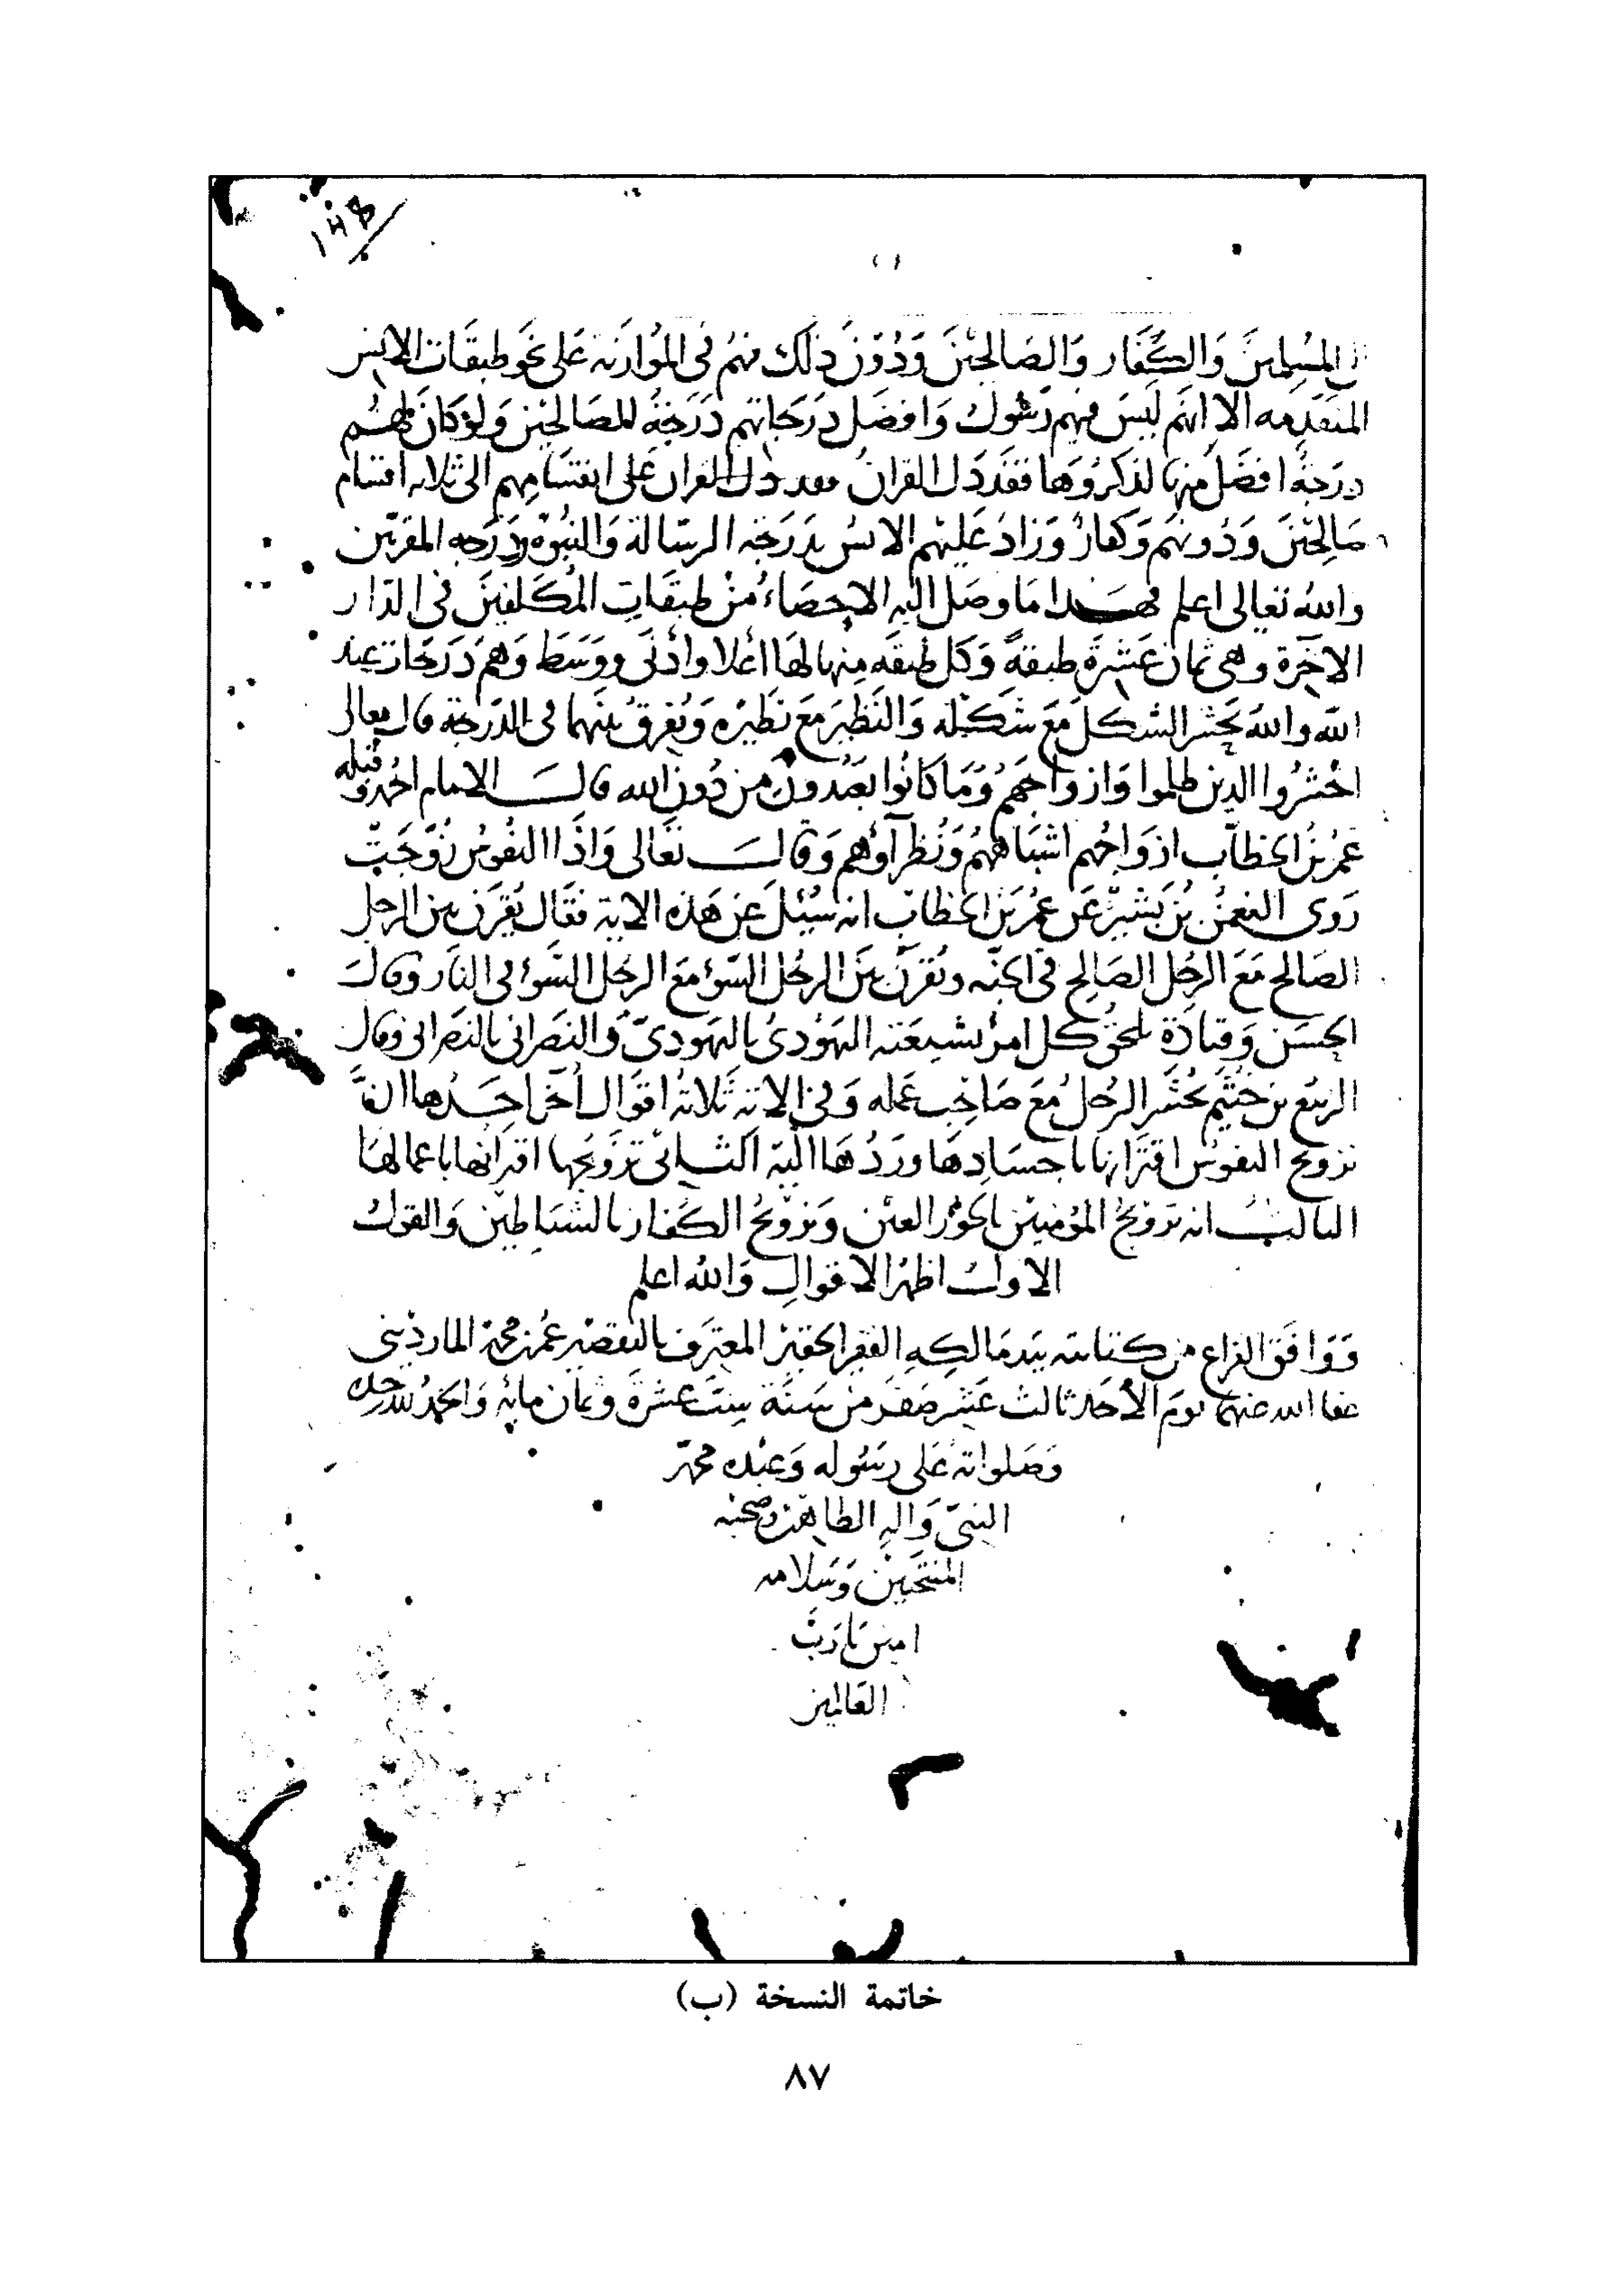 ١٧٤
المُسلمِينَ وَالكُفَّار وَالصَالحِيْنَ وَدُوْنَ ذَلكَ منهُم فى المُوازَنة عَلى نحَو طبقَات الانس
المتَقدِمه الا انهَم لَيسَ فيهم رَسُول وَافضَل دَرَجَاتهم دَرَجَةُ للصَالحيْن وَلوْ كَانَ لهُم
درَجَةً افضَل منها لذكرُوهَا فقَد دَل القرانُ فقد دل القران عَلى انقسَامِهم الى ثلاثه اقسَام
صَالِحيْنَ وَدُونهَم وَكفارٌ وَزادَ عَليْهم الانسُ بدَرَجَة الرسَالة وَالنُبوّة ودَرَجه المقرّبين
والله تعَالى اعلم فهَذا مَا وصَل اليه الاحصَاءُ منْ طبقَاتِ المُكَلفيْنَ فى الدّار
الاخِرَة وهى ثمان عَشرَةَ طبقةً وَكل طبقَه منهَا لهَا اعْلا وادْنَى ووَسَط وَهُم دَرَجَات عِند
الله والله يَحْشر الشكلَ مَعَ شَكْله وَالنَظِيرَ مَع نَظيْره وَيُقرن بينَهما فى الدَرجَة قال تعالى
احْشرُوا الذين ظلموا وَازوَاجَهُم وَمَا كَانُوا يعْبُدونَ من دُون الله قالَ الامام احْمد وَقبله
عُمرُ بنُ الخطاب ازوَاجُهم اشبَاهُهُم وَنُظرَآؤهم وَقالَ تعَالى وَاذَا النفُوسُ زُوّجَتْ
رَوى النعمنُ بنُ بَشيْر عَن عُمرَ بنَ الخطابِ انه سُئِلَ عَن هَذه الاية فقَال يُقرَن بين الرجل
الصَالح مَعَ الرجُل الصَالح فى الجنّه ويُقرَنُ بَيْنَ الرجُل السّوْءِ مَع الرجُل السَّوْءِ فى النار وقالَ
الحسَن وَقتادَة يلحق كل امرُءٍ بشيعَته اليهَودىُ باليَهودىّ وَالنصَرانى بالنصَرانى وقال
الربيع بن خُثَيم يحُشر الرجُلُ مَعَ صَاحِب عَمله وَفى الاية ثَلاثةُ اقوَال اُخَر احَدُها انَّ
تزويج النفوسُ اقترَانهَا باجسَادِهَا ورَدُهَا اليْهَا الثَانى تزويجها اقترَانها باعمالهَا
الثالثُ انه تزويجُ المُؤمنِيْن بالحُوْر العيْن وَتزويْجُ الكفار بالشيَاطِيْن وَالقول
الاولُ اظهرُ الاقوالِ وَالله اعلم
وَوَافَق الفراغ من كتابته بيَد مَالكِهِ الفقير الحقيْر المعترَف بالتقصِير عُمر بن محمّد الماردْينى
عفا الله عنهمُا يَوم الأحَد ثالث عَشر صَفَر منْ سَنَة سِتَ عشرَةَ وثمان مائة وَالحَمدُ لله وحده
وَصَلواته عَلى رسُوله وَعبْده محمّد
النبىّ وَآله الطاهرين وصَحْبه
المنتَجَبيْنَ وَسَلامه
امين يَا رَبَّ
العَالمين
خاتمة النسخة (ب)
٨٧